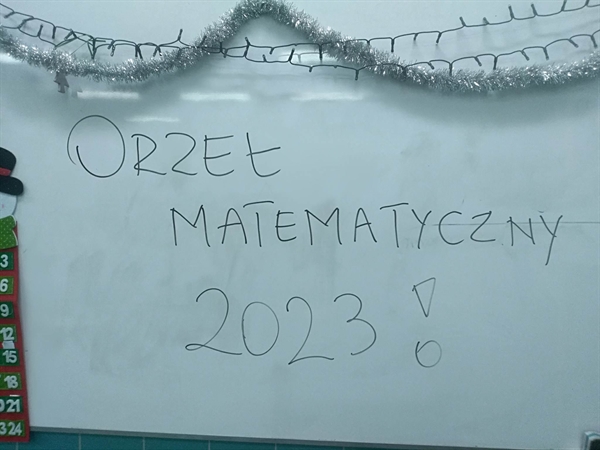 ORZEŁ
MATEMATYCZNY
2023!
3
6
9
12
15
18
21
24